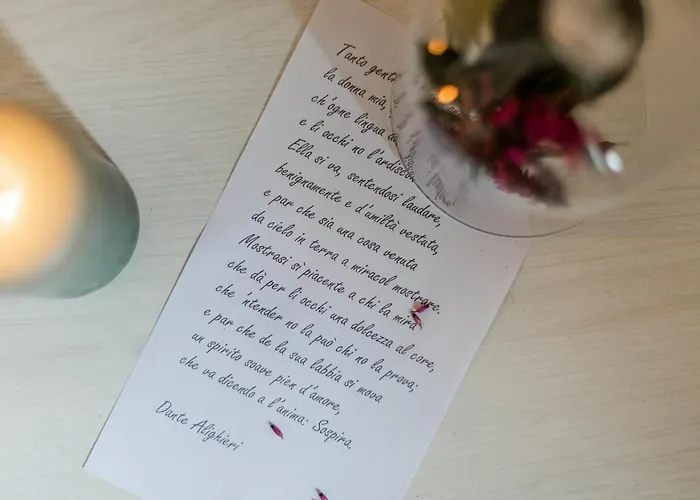 Tanto genti
la donna mia,
ch'ogne lingua
e li occhi no l'ardiscon
Ella si va, sentendosi laudare,
benignamente e d'umiltà vestuta,
e par che sia una cosa venuta
da cielo in terra a miracol mostrare.
Mostrasi sì piacente a chi la mira
che dà per li occhi una dolcezza al core,
che 'ntender no la può chi no la prova;
e par che de la sua labbia si mova
un spirito soave pien d'amore,
che va dicendo a l'anima: Sospira.
Dante Alighieri